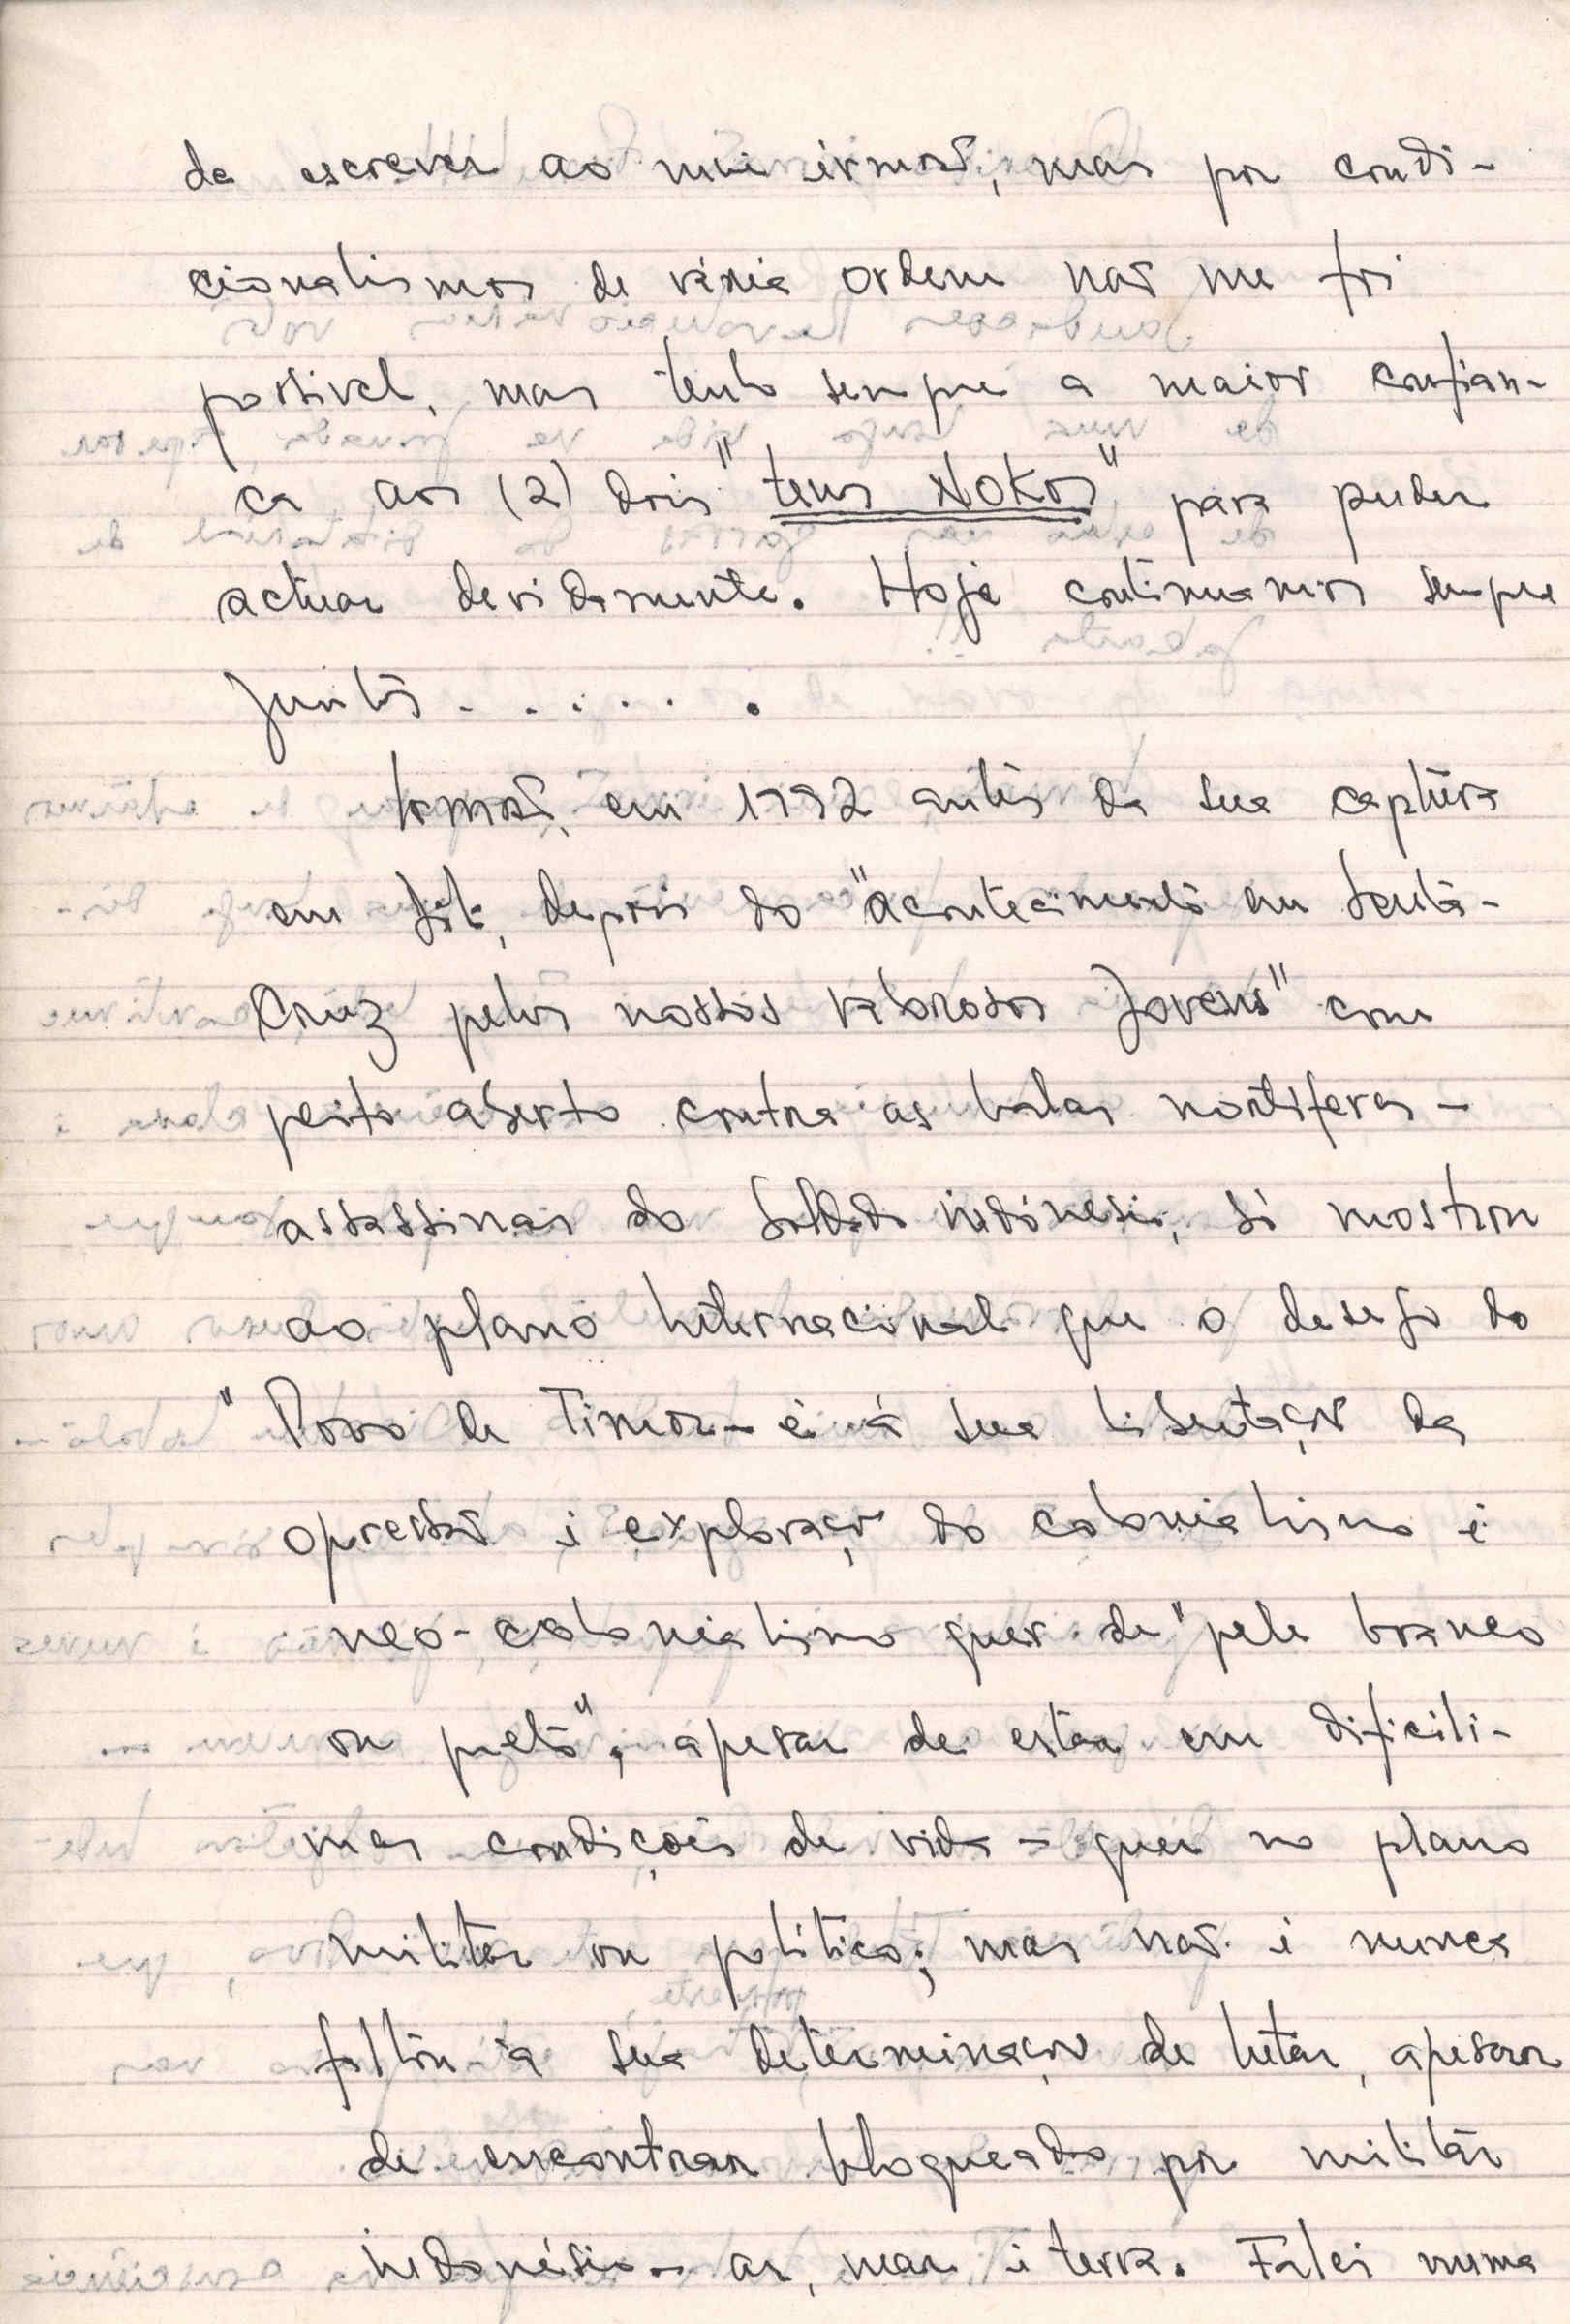 de escrever ao meu irmaõ, mas por condi-
cionalismos de vária ordem naõ me foi
possivel, mas tenho sempre a maior confian-
ca aos (2) dois "teus NOKOS" para puder
actuar devidamente. Hoje continuamos sempre
Juntos . . . . . .
Irmaõ, em 1992 antes da sua captura
em, depois do "acontecimento em Santa-
Cruz pelos nossos valorosos Jovens" com
peito aberto contra as balas mortiferas -
assassinas do Soldado indónesio, só mostrou
ao plano Internacional que o desejo do
"Povo de Timor - é á sua libertaçaõ da
opressaõ i exploraçaõ do colonialismo e
neo-colonialismo quer de "pele branco
ou preto", apesar de estar em dificili-
mas condiçoẽs de vida - quer no plano
militar ou politico; mas naõ i nunca
faltou-à sua determinaçaõ de lutar, apesar
de encontrar bloqueado por militar
indonésio - ar, mar i terra. Falei numa